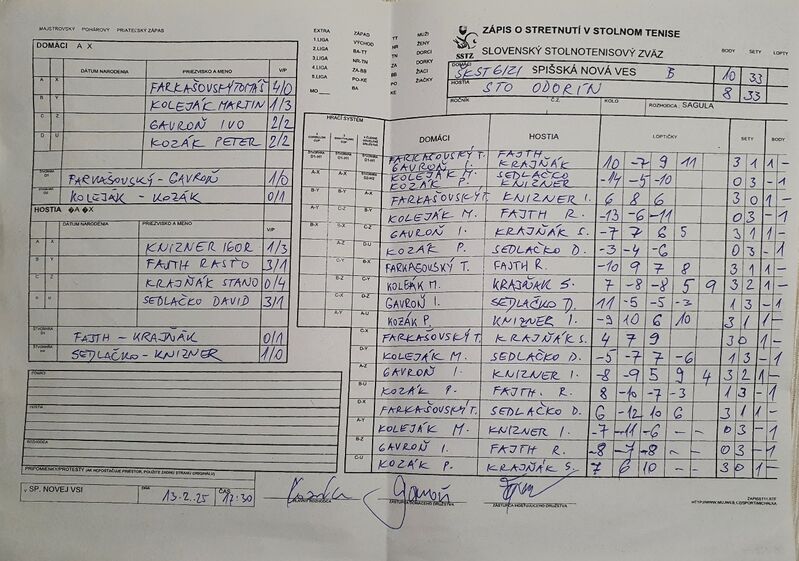 MAJSTROVSKÝ POHÁROVÝ PRIATEĽSKÝ ZÁPAS
DOMÁCI A X
DÁTUM NARODENIA PRIEZVISKO A MENO V/P
A X FARKAŠOVSKÝ TOMÁŠ 4/0
B Y KOLEJÁK MARTIN 1/3
C Z GAVROŇ IVO 2/2
D U KOZÁK PETER 2/2
FARKAŠOVSKÝ - GAVROŇ 1/0
KOLEJÁK - KOZÁK 0/1
HOSTIA �A �X
DÁTUM NARODENIA PRIEZVISKO A MENO V/P
A X KNIZNER IGOR 1/3
B Y FAJTH RASŤO 3/1
C Z KRAJŇÁK STANO 0/4
SEDLAČKO DAVID 3/1
FAJTH - KRAJŇÁK 0/1
SEDLAČKO - KNIZNER 1/0
DOMÁCI
HOSTIA
ROZHODCA
PRIPOMIENKY/PROTESTY (AK NEPOSTAČUJE PRIESTOR, POUŽITE ZADNÚ STRANU ORIGINÁLU)
V SP. NOVEJ VSI DŇA 13.2.25 ČAS 17:30
EXTRA ZÁPAD TT MUŽI
1.LIGA VÝCHOD NR ŽENY
2.LIGA BA-TT DORCI
3.LIGA NR-TN DORKY
4.LIGA ZA-BB ŽIACI
5.LIGA PO-KE ŽIAČKY
MO BA
SSTZ
ZÁPIS O STRETNUTÍ V STOLNOM TENISE
SLOVENSKÝ STOLNOTENISOVÝ ZVÄZ BODY SETY LOPTY
DOMÁCI ŠKST 6/21 SPIŠSKÁ NOVÁ VES B 10 33
HOSTIA STO ODORÍN 8 33
ROČNÍK Č.Z. KOLO ROZHODCA SAGULA
HRACÍ SYSTÉM
DOMÁCI HOSTIA LOPTIČKY SETY BODY
FARKAŠOVSKÝ T. GAVROŇ I. FAJTH KRAJŇÁK 10 -7 9 11 3 1 1 -
KOLEJÁK M. KOZÁK P. SEDLAČKO KNIZNER -14 -5 -10 0 3 - 1
FARKAŠOVSKÝ T. KNIZNER I. 6 8 6 3 0 1 -
KOLEJÁK M. FAJTH R. -13 -6 -11 0 3 - 1
GAVROŇ I. KRAJŇÁK S. -7 7 6 5 3 1 1 -
KOZÁK P. SEDLAČKO D. -3 -4 -6 0 3 - 1
FARKAŠOVSKÝ T. FAJTH R. -10 9 7 8 3 1 1 -
KOLEJÁK M. KRAJŇÁK S. 7 -8 -8 5 9 3 2 1 -
GAVROŇ I. SEDLAČKO D. 11 -5 -5 -3 1 3 - 1
KOZÁK P. KNIZNER I. -9 10 6 10 3 1 1 -
FARKAŠOVSKÝ T. KRAJŇÁK S. 4 7 9 3 0 1 -
KOLEJÁK M. SEDLAČKO D. -5 -7 7 -6 1 3 - 1
GAVROŇ I. KNIZNER I. -8 -9 5 9 4 3 2 1 -
KOZÁK P. FAJTH. R. -8 -10 -7 -3 1 3 - 1
FARKAŠOVSKÝ T. SEDLAČKO D. 6 -12 10 6 3 1 1 -
KOLEJÁK M. KNIZNER I. -7 -11 -6 - - 0 3 - 1
GAVROŇ I. FAJTH R. -8 -7 -8 - - 0 3 - 1
KOZÁK P. KRAJŇÁK S. 7 6 10 - - 3 0 1 -
HLAVNÝ ROZHODCA ZÁSTUPCA DOMÁCEHO DRUŽSTVA ZÁSTUPCA HOSŤUJÚCEHO DRUŽSTVA